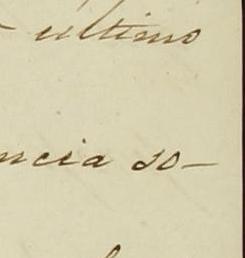 ultimo
ncia so-